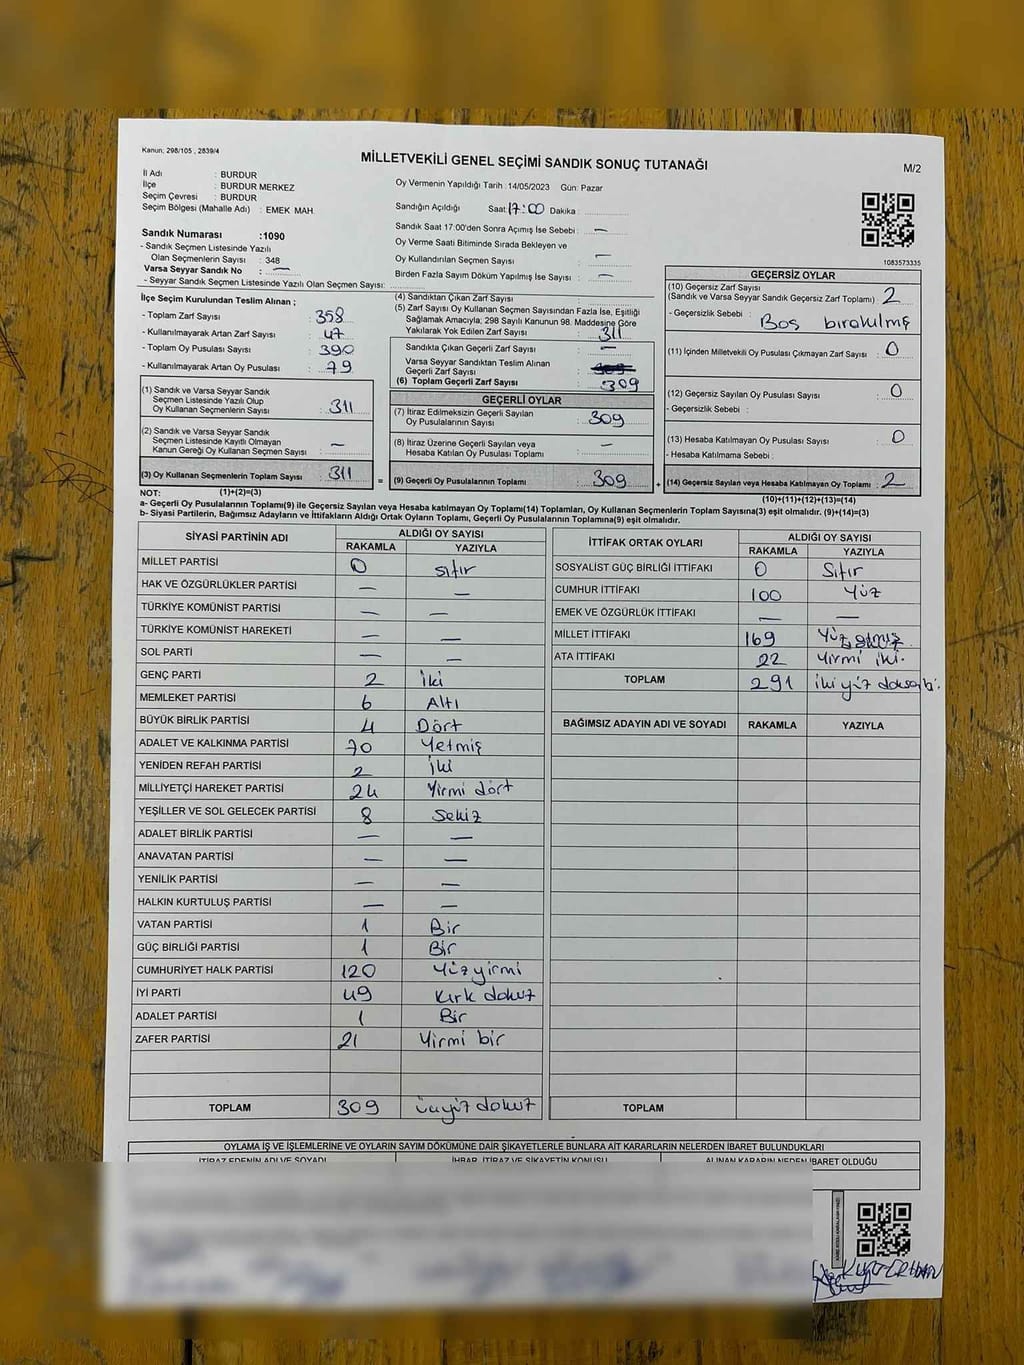 Kanun; 298/105 , 2839/4
MİLLETVEKİLİ GENEL SEÇİMİ SANDIK SONUÇ TUTANAĞI
M/2
İl Adı : BURDUR
İlçe : BURDUR MERKEZ
Seçim Çevresi : BURDUR
Seçim Bölgesi (Mahalle Adı) : EMEK MAH.
Sandık Numarası :1090
- Sandık Seçmen Listesinde Yazılı
Olan Seçmenlerin Sayısı : 348
Varsa Seyyar Sandık No : —
- Seyyar Sandık Seçmen Listesinde Yazılı Olan Seçmen Sayısı:
Oy Vermenin Yapıldığı Tarih : 14/05/2023 Gün: Pazar
Sandığın Açıldığı Saat: 17:00 Dakika :
Sandık Saat 17:00'den Sonra Açımış İse Sebebi : —
Oy Verme Saati Bitiminde Sırada Bekleyen ve
Oy Kullandırılan Seçmen Sayısı : —
Birden Fazla Sayım Döküm Yapılmış İse Sayısı : —
1083573335
İlçe Seçim Kurulundan Teslim Alınan ;
- Toplam Zarf Sayısı : 358
- Kullanılmayarak Artan Zarf Sayısı : 47
- Toplam Oy Pusulası Sayısı : 390
- Kullanılmayarak Artan Oy Pusulası : 79
(1) Sandık ve Varsa Seyyar Sandık
Seçmen Listesinde Yazılı Olup
Oy Kullanan Seçmenlerin Sayısı : 311
(2) Sandık ve Varsa Seyyar Sandık
Seçmen Listesinde Kayıtlı Olmayan
Kanun Gereği Oy Kullanan Seçmen Sayısı : —
(3) Oy Kullanan Seçmenlerin Toplam Sayısı : 311
(1)+(2)=(3)
(4) Sandıktan Çıkan Zarf Sayısı :
(5) Zarf Sayısı Oy Kullanan Seçmen Sayısından Fazla İse, Eşitliği
Sağlamak Amacıyla; 298 Sayılı Kanunun 98. Maddesine Göre
Yakılarak Yok Edilen Zarf Sayısı : 311
Sandıkta Çıkan Geçerli Zarf Sayısı : —
Varsa Seyyar Sandıktan Teslim Alınan
Geçerli Zarf Sayısı :
(6) Toplam Geçerli Zarf Sayısı : 309
GEÇERLİ OYLAR
(7) İtiraz Edilmeksizin Geçerli Sayılan
Oy Pusulalarının Sayısı : 309
(8) İtiraz Üzerine Geçerli Sayılan veya
Hesaba Katılan Oy Pusulası Toplamı : —
= (9) Geçerli Oy Pusulalarının Toplamı : 309
GEÇERSİZ OYLAR
(10) Geçersiz Zarf Sayısı
(Sandık ve Varsa Seyyar Sandık Geçersiz Zarf Toplamı) : 2
- Geçersizlik Sebebi : Boş bırakılmış
(11) İçinden Milletvekili Oy Pusulası Çıkmayan Zarf Sayısı : 0
(12) Geçersiz Sayılan Oy Pusulası Sayısı : 0
- Geçersizlik Sebebi :
(13) Hesaba Katılmayan Oy Pusulası Sayısı : 0
- Hesaba Katılmama Sebebi :
+ (14) Geçersiz Sayılan veya Hesaba Katılmayan Oy Toplamı : 2
(10)+(11)+(12)+(13)=(14)
NOT:
a- Geçerli Oy Pusulalarının Toplamı(9) ile Geçersiz Sayılan veya Hesaba katılmayan Oy Toplamı(14) Toplamları, Oy Kullanan Seçmenlerin Toplam Sayısına(3) eşit olmalıdır. (9)+(14)=(3)
b- Siyasi Partilerin, Bağımsız Adayların ve İttifakların Aldığı Ortak Oyların Toplamı, Geçerli Oy Pusulalarının Toplamına(9) eşit olmalıdır.
SİYASİ PARTİNİN ADI ALDIĞI OY SAYISI
RAKAMLA YAZIYLA
MİLLET PARTİSİ 0 sıfır
HAK VE ÖZGÜRLÜKLER PARTİSİ — —
TÜRKİYE KOMÜNİST PARTİSİ — —
TÜRKİYE KOMÜNİST HAREKETİ — —
SOL PARTİ — —
GENÇ PARTİ 2 iki
MEMLEKET PARTİSİ 6 Altı
BÜYÜK BİRLİK PARTİSİ 4 Dört
ADALET VE KALKINMA PARTİSİ 70 Yetmiş
YENİDEN REFAH PARTİSİ 2 iki
MİLLİYETÇİ HAREKET PARTİSİ 24 Yirmi dört
YEŞİLLER VE SOL GELECEK PARTİSİ 8 Sekiz
ADALET BİRLİK PARTİSİ — —
ANAVATAN PARTİSİ — —
YENİLİK PARTİSİ — —
HALKIN KURTULUŞ PARTİSİ — —
VATAN PARTİSİ 1 Bir
GÜÇ BİRLİĞİ PARTİSİ 1 Bir
CUMHURİYET HALK PARTİSİ 120 Yüzyirmi
İYİ PARTİ 49 Kırk dokuz
ADALET PARTİSİ 1 Bir
ZAFER PARTİSİ 21 Yirmi bir
TOPLAM 309 üçyüz dokuz
İTTİFAK ORTAK OYLARI ALDIĞI OY SAYISI
RAKAMLA YAZIYLA
SOSYALİST GÜÇ BİRLİĞİ İTTİFAKI 0 Sıfır
CUMHUR İTTİFAKI 100 Yüz
EMEK VE ÖZGÜRLÜK İTTİFAKI — —
MİLLET İTTİFAKI 169 Yüz
ATA İTTİFAKI 22 Yirmi iki.
TOPLAM 291 iki yüz doksanbi.
BAĞIMSIZ ADAYIN ADI VE SOYADI RAKAMLA YAZIYLA
TOPLAM
OYLAMA İŞ VE İŞLEMLERİNE VE OYLARIN SAYIM DÖKÜMÜNE DAİR ŞİKAYETLERLE BUNLARA AİT KARARLARIN NELERDEN İBARET BULUNDUKLARI
İTİRAZ EDENİN ADI VE SOYADI İHBAR, İTİRAZ VE ŞİKAYETİN KONUSU ALINAN KARARIN NEDEN İBARET OLDUĞU